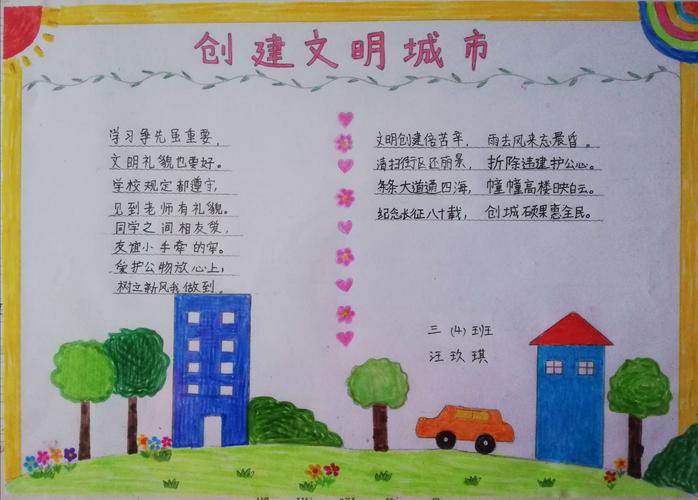 创建文明城市
学习争先虽重要，
文明礼貌也要好。
学校规定都遵守，
见到老师有礼貌。
同学之间相友爱，
友谊小手牵的牢。
爱护公物放心上，
树立新风我做到。
文明创建倍苦辛， 雨去风来忘晨昏。
清扫街区还丽景， 折除违建护公心。
条条大道通四海， 幢幢高楼映白云。
纪念水征八十载， 创城硕果惠全民。
三（4）班
汪玖琪